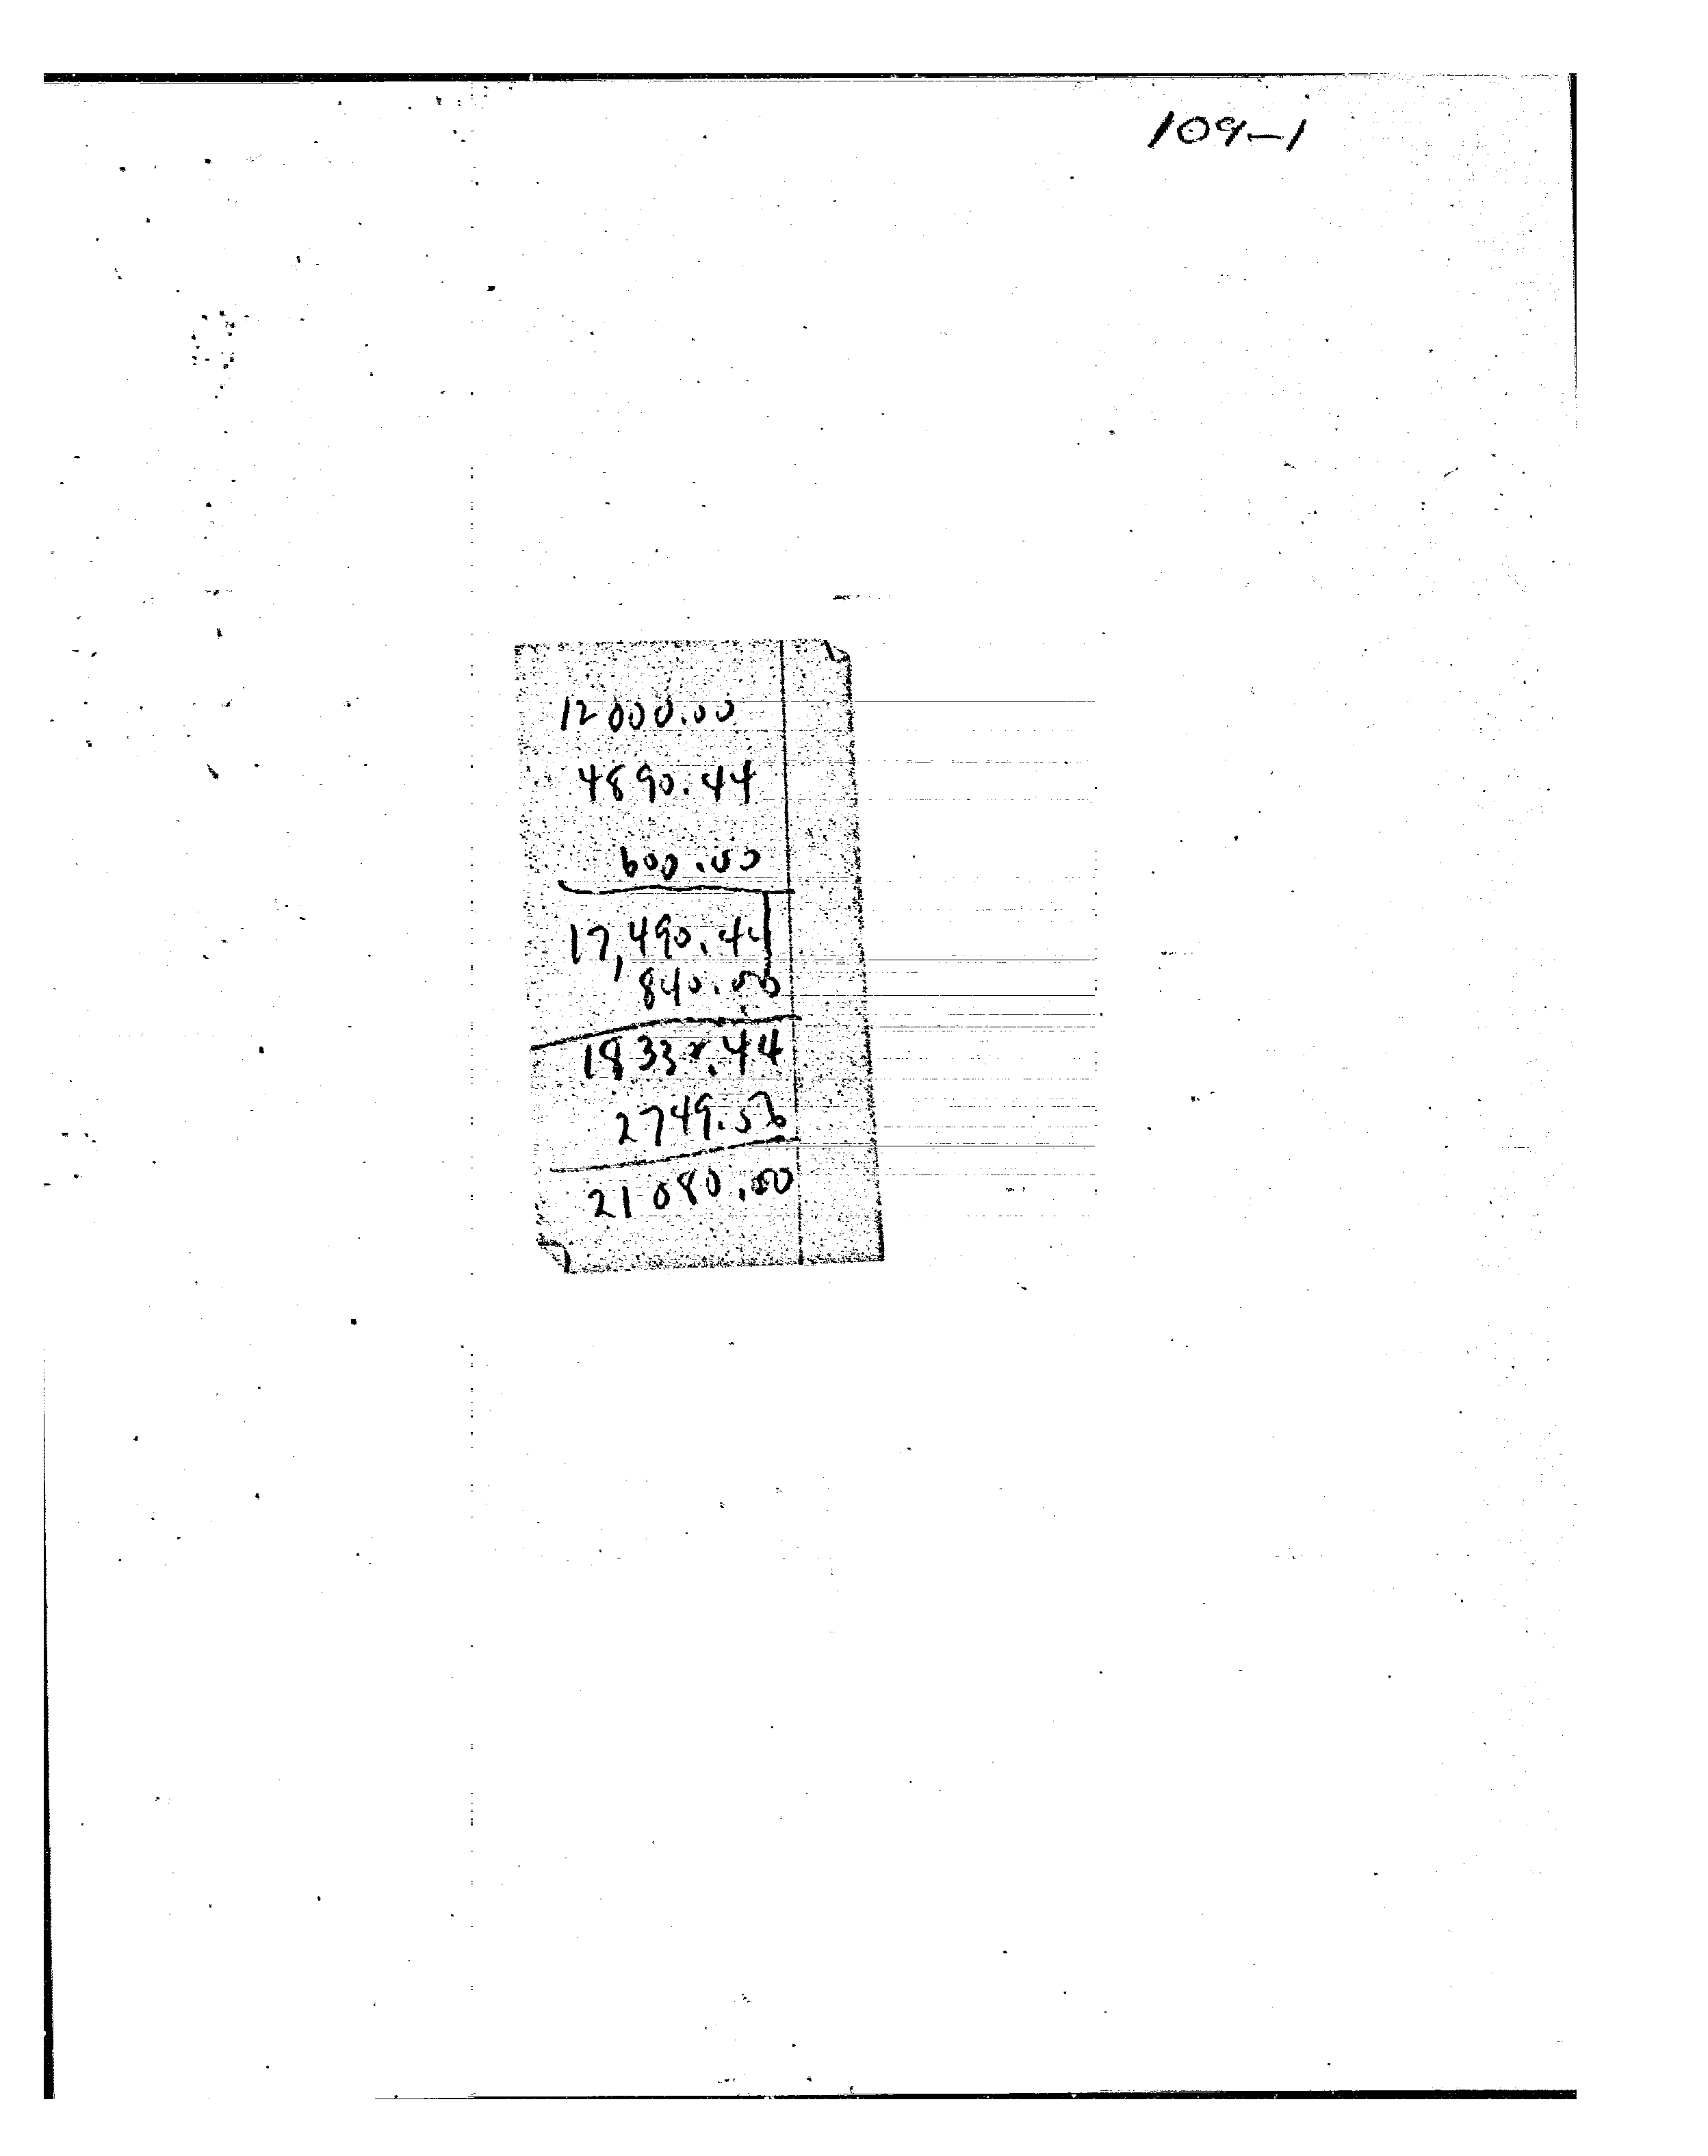 109-1
12000.00
4890.44
600.00
17,490.44
840.00
18330.44
2749.56
21080.00